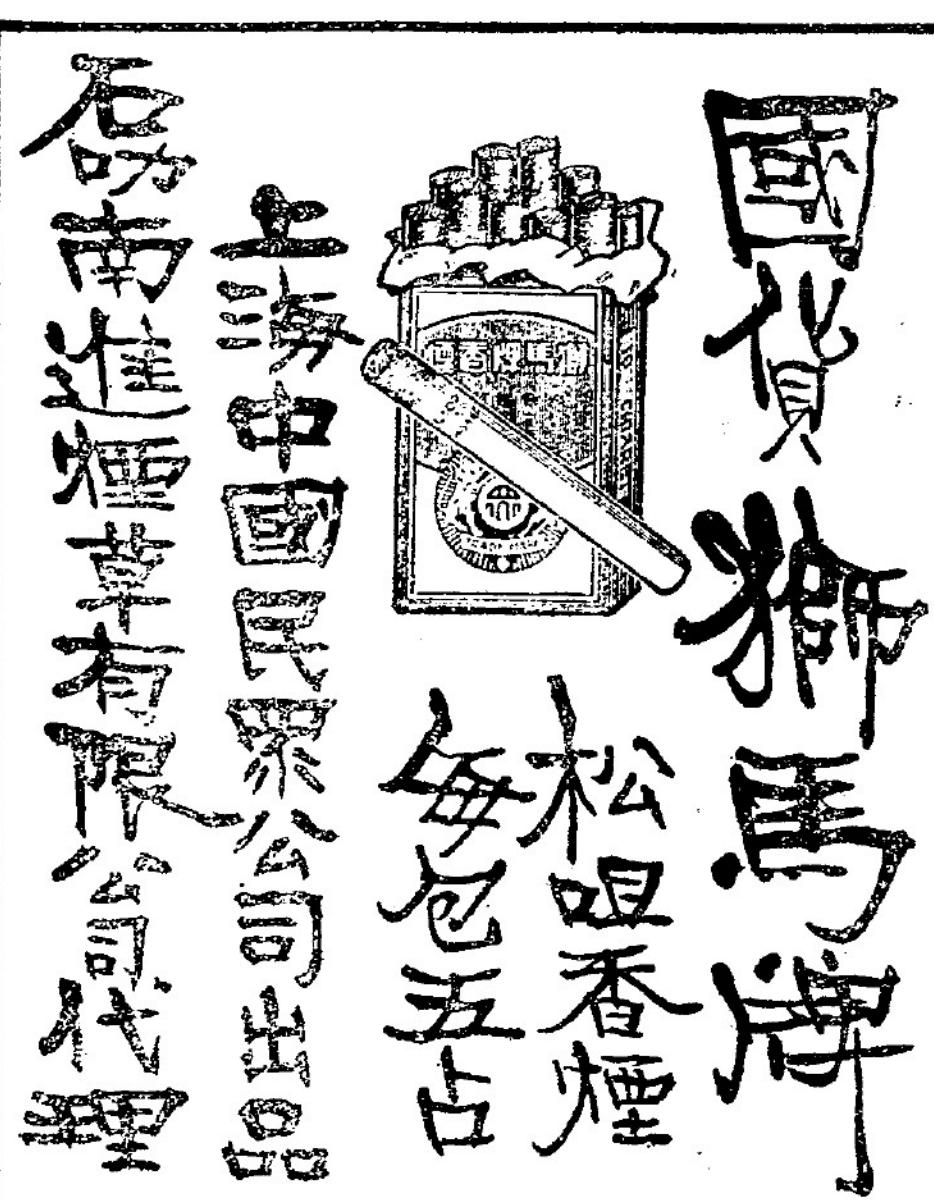 國貨獅馬牌
松咀香煙
每包五占
獅馬牌香煙
TRADE MARK
上海中國民眾公司出品
石叻南進煙草有限公司代理